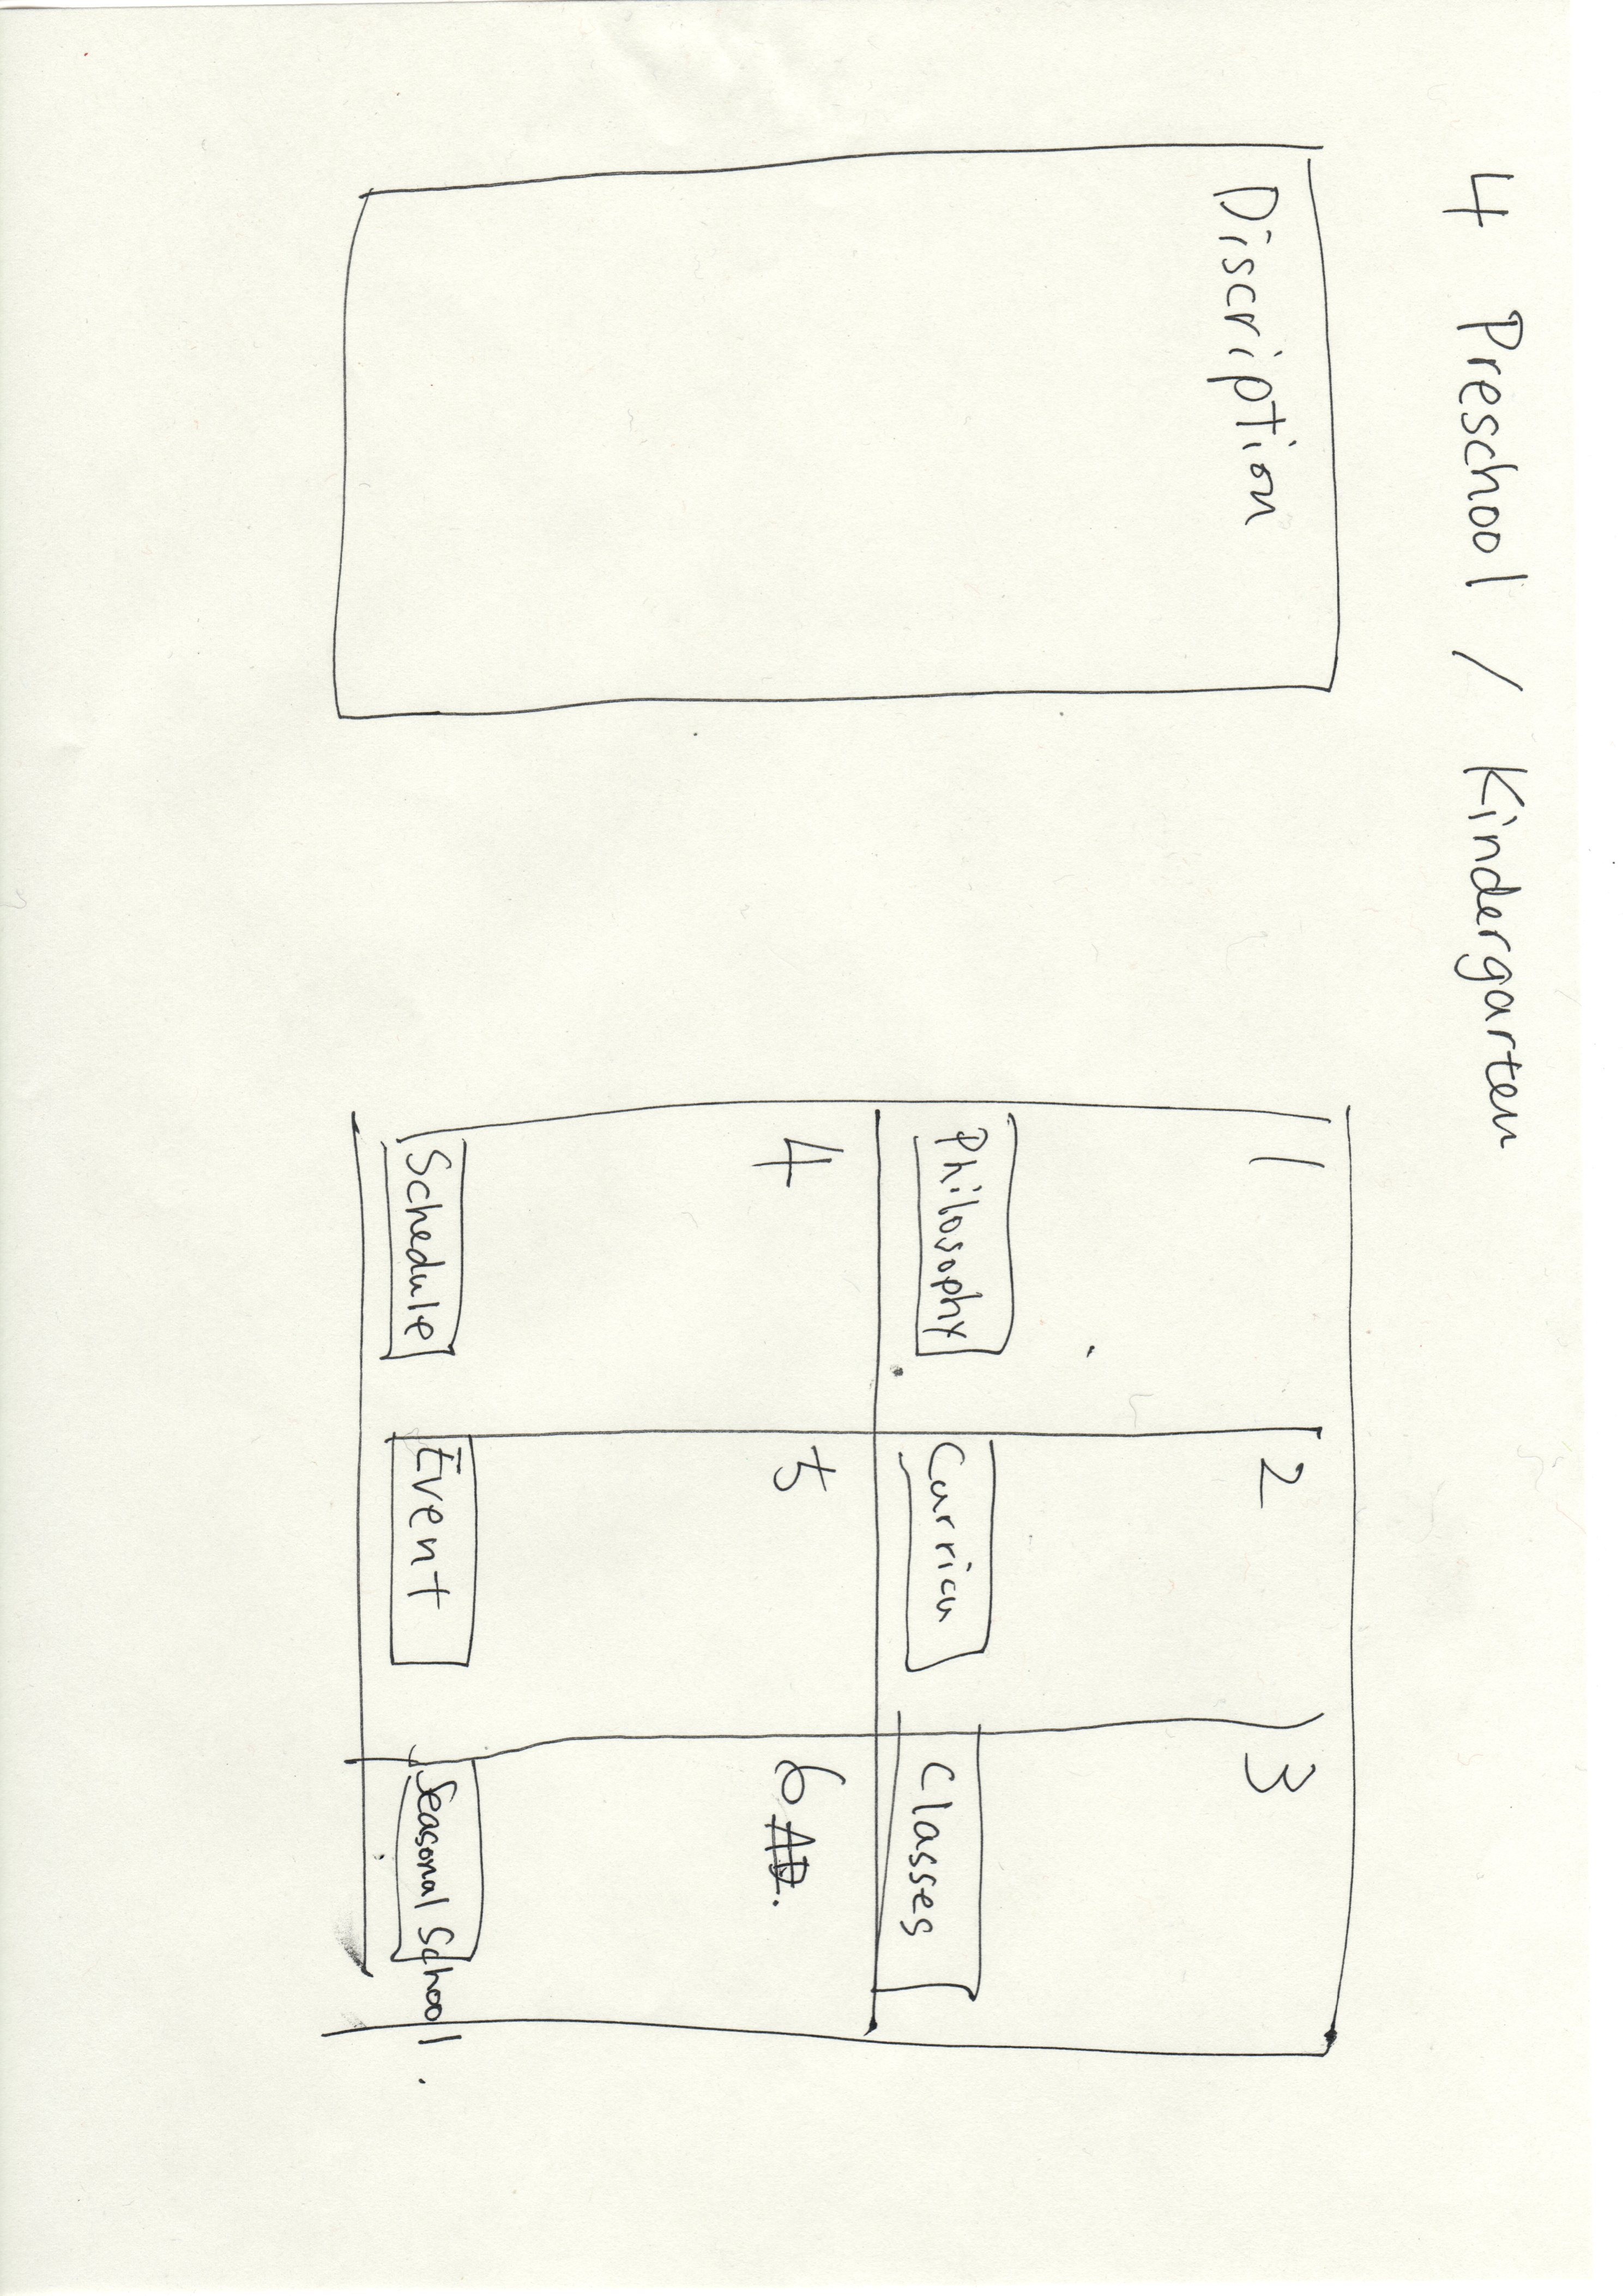 4 Preschool / Kindergarten
Discription
1
2
3
Philosophy
Curricu
Classes
4
5
6
Schedule
Event
Seasonal School.